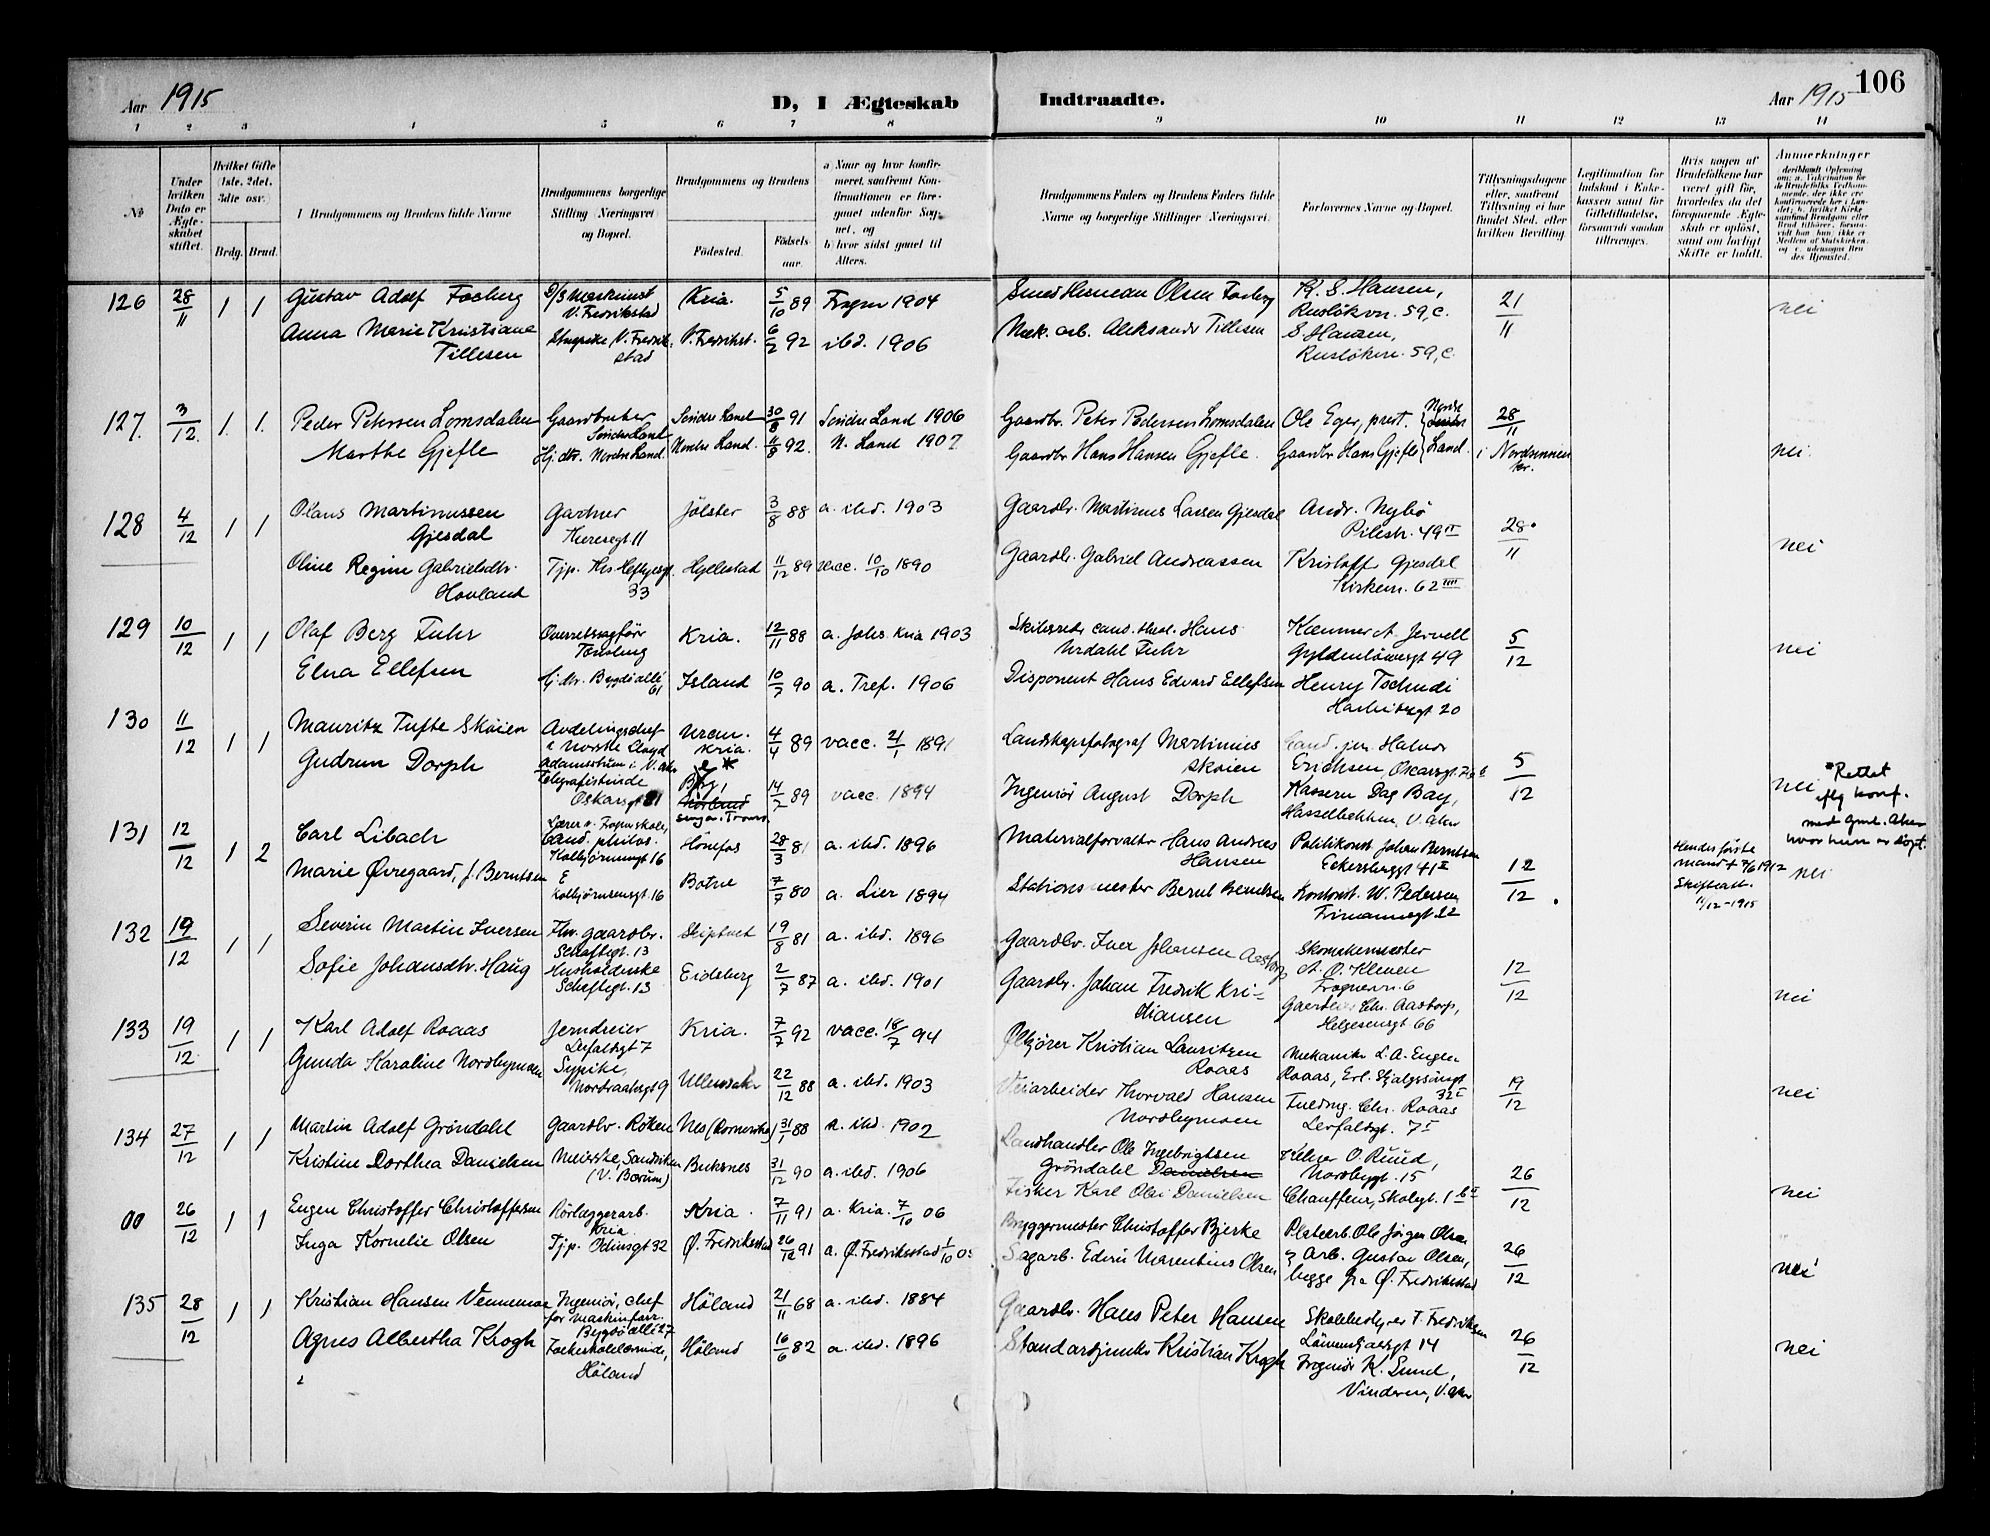 Aar 1915
D, 1 Ægteskab
Indtraadte.
Aar 1915
106
1 2 3 4 5 6 7 8 9 10 11 12 13 14
№
Under hvilken Dato er Ægteskabet stiftet.
Hvilket Gifte (1ste, 2det, 3die osv.)
Brdg. Brud.
Brudgommens og Brudens fulde Navne
Brudgommens borgerlige Stilling (Næringsvei) og Bopæl.
Brudgommens og Brudens
Födested.
Födselsaar.
a Naar og hvor konfirmeret, saafremt Konfirmationen er foregaaet udenfor Sognet, og
b hvor sidst gaaet til Alters.
Brudgommens Faders og Brudens Faders fulde Navne og borgerlige Stillinger (Næringsvei).
Forlovernes Navne og Bopæl.
Tillysningsdagene eller, saafremt Tillysning ei har fundet Sted, efter hvilken Bevilling.
Legitimation for Indskud i Enkekassen samt for Giftetilladelse, forsaavidt saadan tiltrænges.
Hvis nogen af Brudefolkene har været gift för, hvorledes da det foregaaende Ægteskab er oplöst, samt om lovligt Skifte er holdt.
Anmerkninger
126 28/11 1 1
Gustav Adolf Fosberg D/S Maskinist V. Fredrikstad Kria. 5/10 89 Frogn 1904
Smed Herman Olsen Fosberg R. S. Hansen, Ruslökvn. 59, c. 21/11 nei
Anna Marie Kristiane Tillesen V. Fredrikstad V. Fredrikst. 6/2 92 ibd. 1906
Mek. arb. Aleksander Tillesen S. Hansen, Ruslökvn. 59, c.
127. 3/12. 1. 1.
Peder Petersen Lomsdalen Gaardbruker Söndre Land Söndre Land 30/8 91 Söndre Land 1906
Gaardbr. Peter Pedersen Lomsdalen Ole Eger, prest. Nordre Land. 28/11
Marthe Gjefle Hj. dtr. Nordre Land. Nordre Land. 11/8 92. N. Land 1907
Gaardbr. Hans Hansen Gjefle. Gaardbr Hans Gjefle i Nordsinnen kr. nei.
128 4/12 1 1
Olaus Martinussen Gjesdal Gartner 11 Jölster 3/8 88 a. ibd. 1903
Gaardbr. Martinus Larsen Gjesdal Andr. Nybö Pilestr. 49 II 28/11 nei
Oline Regine Gabrielsdtr. Hovland Tjp. Ths Heftyesgt. 33 Hyllestad 11/12 89 vacc. 10/10 1890
Gaardbr. Gabriel Andreassen Kristoffer Gjesdal Kirkevn. 62 IIII
129 10/12 1 1
Olaf Berg Fuhr Overretssagförer Tönsberg Kria. 12/11 88 a. Johs. Kria 1903
cand. theol. Hans Urdahl Fuhr Kæmner A. Jervell Gyldenlövesgt 49 5/12 nei
Elna Ellefsen Hj. dtr. Bygdö allé 61 Island 10/7 90 a. Tref. 1906
Disponent Hans Edvard Ellefsen Henry Tschudi Harbitzgt 20
130 11/12 1 1
Mauritz Tufte Skøien Avdelingschef i Norske Lloyd V. Aker Uran. Kria. 4/4 89 vacc. 21/1 1891
Landskapsfotograf Martinius Skøien Cand. jur. Halvor Erichsen, Oscarsgt. 5/12
Gudrun Dorph Telegrafistinde Oskarsgt 81 14/2 89 vacc. 1894
Ingeniör August Dorph Kasserer Dag Bay, Hasselbakken, V. Aker nei
*Rettet efter konf. med Gml. Aker hvor hun er döpt.
131 12/12 1 2
Carl Libach Lærer v. Frogner skole, Cand. philos. Kolbjörnsensgt 16 Hönefos 28/3 81 a. ibd. 1896
Materialforvalter Hans Andreas Hansen Politikonst. Johan Berntsen Eckersbergsgt 41 II 12/12 .
Hendes förste mand † 7/6 1912 Skifteatt. 11/12-1915 nei
Marie Øvregaard, f. Berntsen E Kolbjörnsensgt 16 Botne 7/7 80 a. Lier 1894
Stationsmester Bernt Berntsen Kontorist. W. Pedersen Frimannsgt 22
132 19/12 1 1
Severin Martin Iversen Fhv. gaardbr. Schaftesgt. 13 Skiptvet 19/8 81 a. ibd. 1896
Gaardbr. Iver Johansen Aastorp Skomakermester A. O. Kleven Frognervn. 6 12/12 nei
Sofie Johansdtr. Haug Husholderske Schaftesgt. 13 Eidsberg 2/7 87 a. ibd. 1901
Gaardbr. Johan Fredrik Kristiansen Chr. Aastorp, Helgesensgt 66
133 19/12. 1 1
Karl Adolf Roaas Jerndreier Lerfaldsgt 7 Kria. 7/7 92 vacc. 18/7 94
Ølkjörer Kristian Lauritzen Roaas Mekaniker L. A. Eugen Roaas, Erl. Skjalgssönsgt 32 I 19/12 nei
Gunda Karoline Nordbymoen Sypike, Nordraaksgt 9 Ullensaker 22/12 88 a. ibd. 1903
Veiarbeider Thorvald Hansen Nordbymoen Fuldmg. Chr. Roaas Lerfaldsgt. 7 I
134 27/12 1 1
Martin Adolf Gröndahl Gaardbr. Röken Nes (Romerike) 31/1 88 a. ibd. 1902
Landhandler Ole Ingebrigtsen Gröndahl Danielsen Kelner O. Ruud, Nordbygt. 15 26/12 nei
Kristine Dorthea Danielsen Meierske, Sandviken (V. Bærum) Buksnes 31/12 90 a. ibd. 1906
Fisker Karl Olai Danielsen Chauffeur, Skolegt. 1
00 26/12 1 1
Eugen Christoffer Christoffersen Rörlæggerarb. Kria Kria. 7/11 91 a. Kria. 7/10 06
Bryggermester Christoffer Bjerke Platearb. Ole Jörgen Olsen 26/12 nei
Inga Kornelie Olsen Tjp. Odinsgt 32 Ø. Fredriksstad 26/12 91 a. Ø. Fredriksstad 1/10
Sagarb. Edvin Marentius Olsen & Arb. Gustav Olsen, begge fra Ø. Fredriksstad
135 28/12 1 1
Kristian Hansen Vennemoe Ingeniör, chef for Bygdö allé 27 Höland 21/11 68 a. ibd. 1884
Gaardbr. Hans Peter Hansen Skolebestyrer T. Fredriksen 14 26/12 nei
Agnes Albertha Krogh Höland Höland 16/6 82 a. ibd. 1896
Kristian Krogh Ingeniör K. Lund, Vinderen, V. Aker